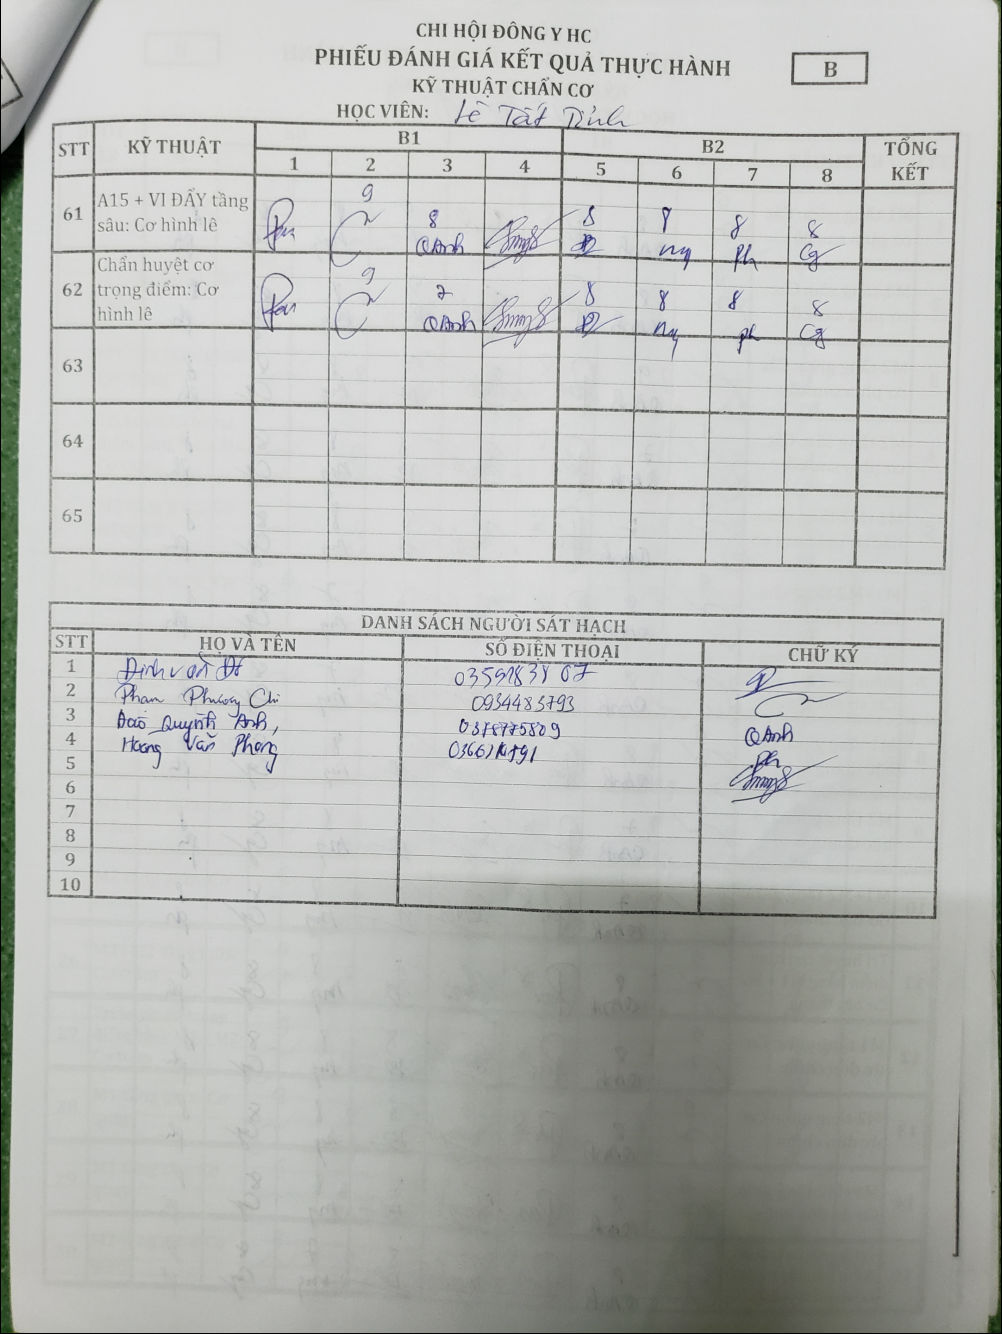 CHI HỘI ĐÔNG Y HC
PHIẾU ĐÁNH GIÁ KẾT QUẢ THỰC HÀNH
B
KỸ THUẬT CHẨN CƠ
HỌC VIÊN: Lê Tất
STT KỸ THUẬT B1 B2 TỔNG KẾT
1 2 3 4 5 6 7 8
61 A15 + VI ĐẨY tầng sâu: Cơ hình lê
9 8 8 8 8 8
QAnh Ng Ph Cg
62 Chẩn huyệt cơ trọng điểm: Cơ hình lê
9 7 8 8 8 8
QAnh Ng Ph Cg
63
64
65
DANH SÁCH NGƯỜI SÁT HẠCH
STT HỌ VÀ TÊN SỐ ĐIỆN THOẠI CHỮ KÝ
1 Đinh Văn
2 Phạm Phương Chi 0934483793
3 Đào Quỳnh Anh, QAnh
4 Hoàng Văn Phong Ph
5
6
7
8
9
10